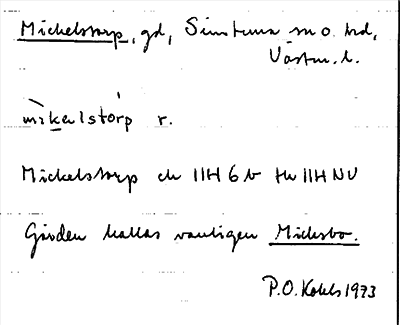 Mickelstorp, gd, Simtuna sn o. hd,
Västm. l.
mìkɐlstórp r.
Mickelstorp ek 11H 6 b tk 11H NV
Gården kallas vanligen Micksbo.
P.O. 1973